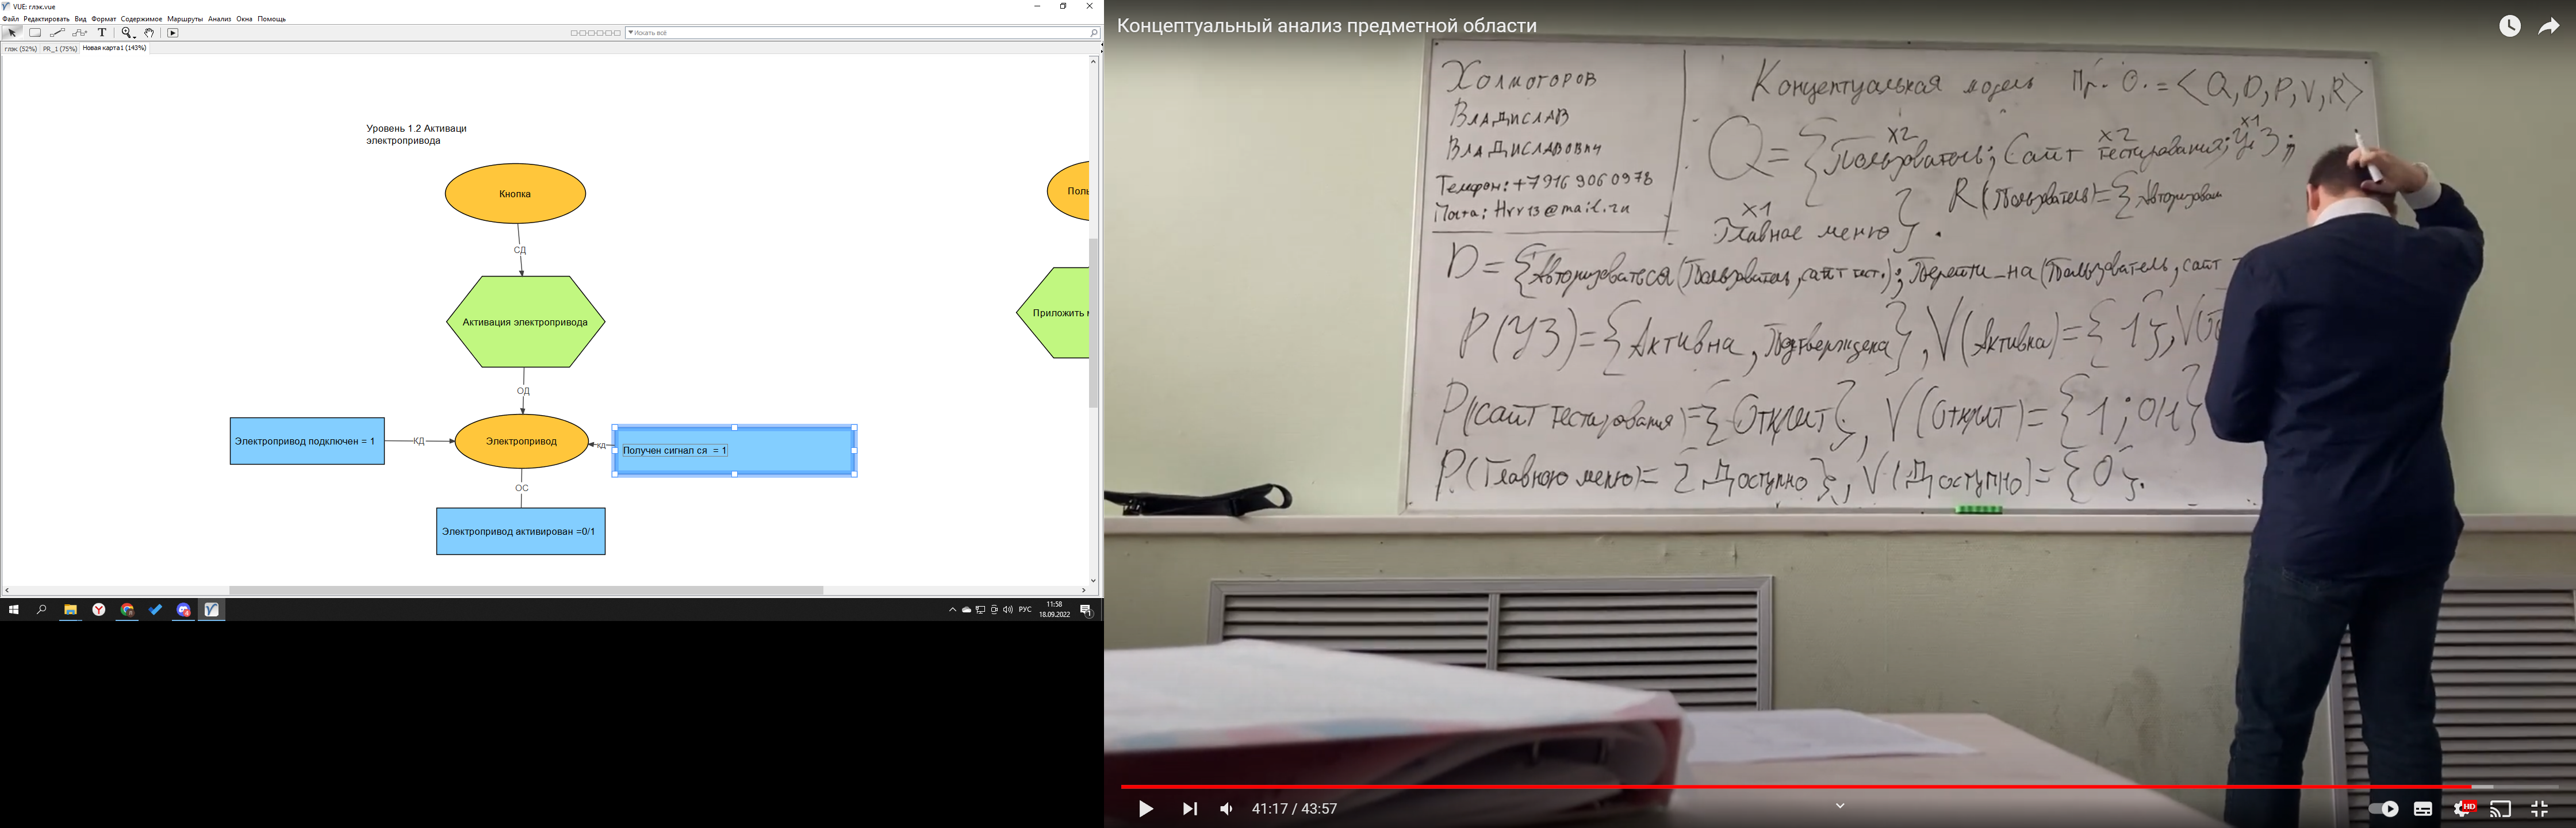 VUE: глэк.vue
Файл Редактировать Вид Формат Содержимое Маршруты Анализ Окна Помощь
Искать всё
глэк (52%) PR_1 (75%) Новая карта1 (143%)
Уровень 1.2 Активаци
электропривода
Кнопка
Поль
СД
Активация электропривода
Приложить м
ОД
Электропривод подключен = 1
КД
Электропривод
КД
Получен сигнал ся = 1
ОС
Электропривод активирован =0/1
РУС
11:58
18.09.2022
1
Концептуальный анализ предметной области
Холмогоров
Владислав
Владиславович
Телефон: +7916 906 0978
Почта: Hvv13@mail.ru
Концептуальная модель Пр. О. = <Q, D, P, V, R>
x2 x2 x1
Q = {Пользователь; Сайт тестирования; УЗ;
x1
Главное меню}.
R(Пользователь)={Авторизован
D = {Авторизоваться(Пользователь, сайт тест.); Перейти_на(Пользователь, сайт
P(УЗ)={Активна, Подтверждена}, V(Активна)={1}, V(
P(сайт тестирования)={Открыт}, V(Открыт)={1; 0/1}
P(Главного меню)={Доступно}, V(Доступно)={0}.
41:17 / 43:57
HD